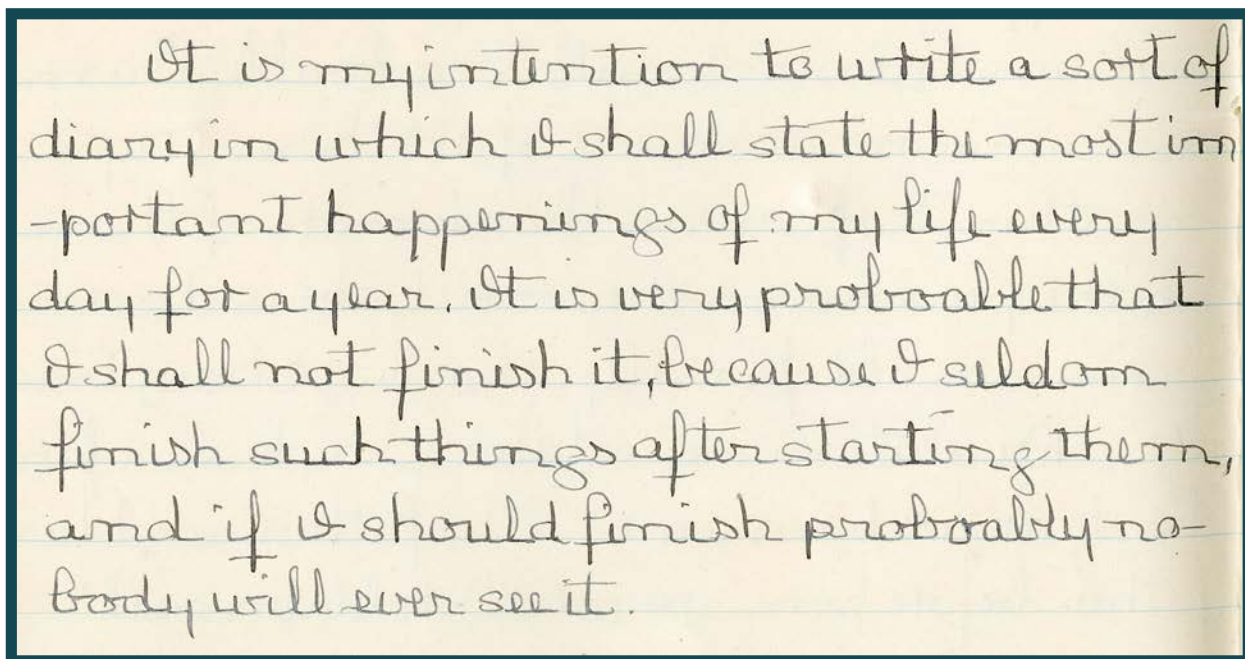 It is my intention to write a sort of
diary in which I shall state the most im
-portant happenings of my life every
day for a year. It is very probable that
I shall not finish it, because I seldom
finish such things after starting them,
and if I should finish probably no-
body will ever see it.